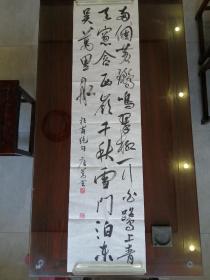 两個黄鸝鳴翠柳一行白鷺上青
天窗含西嶺千秋雪門泊東
吴萬里船
杜甫绝句